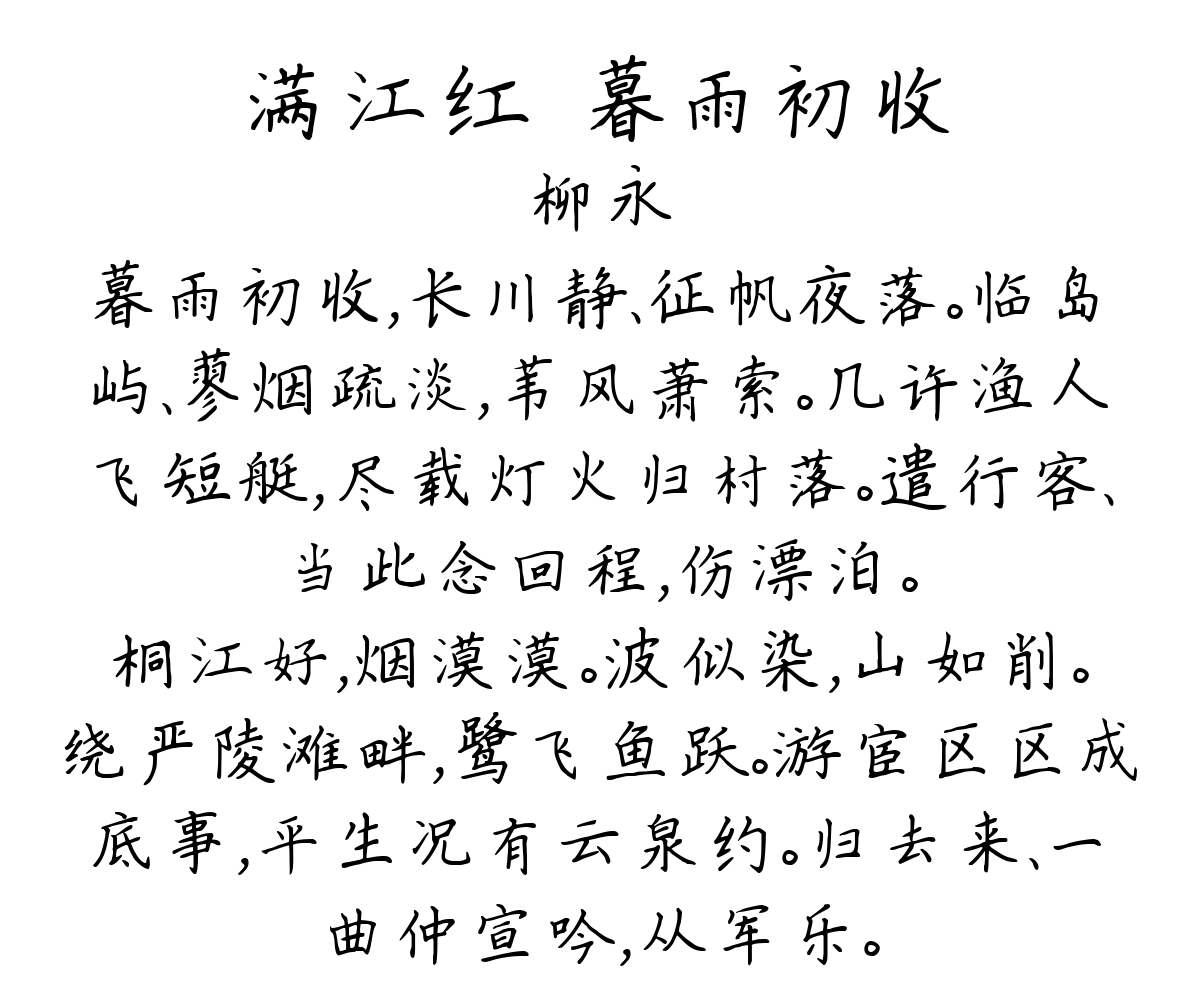 满江红 暮雨初收
柳永
暮雨初收,长川静、征帆夜落。临岛
屿、蓼烟疏淡,苇风萧索。几许渔人
飞短艇,尽载灯火归村落。遣行客、
当此念回程,伤漂泊。
桐江好,烟漠漠。波似染,山如削。
绕严陵滩畔,鹭飞鱼跃。游宦区区成
底事,平生况有云泉约。归去来、一
曲仲宣吟,从军乐。